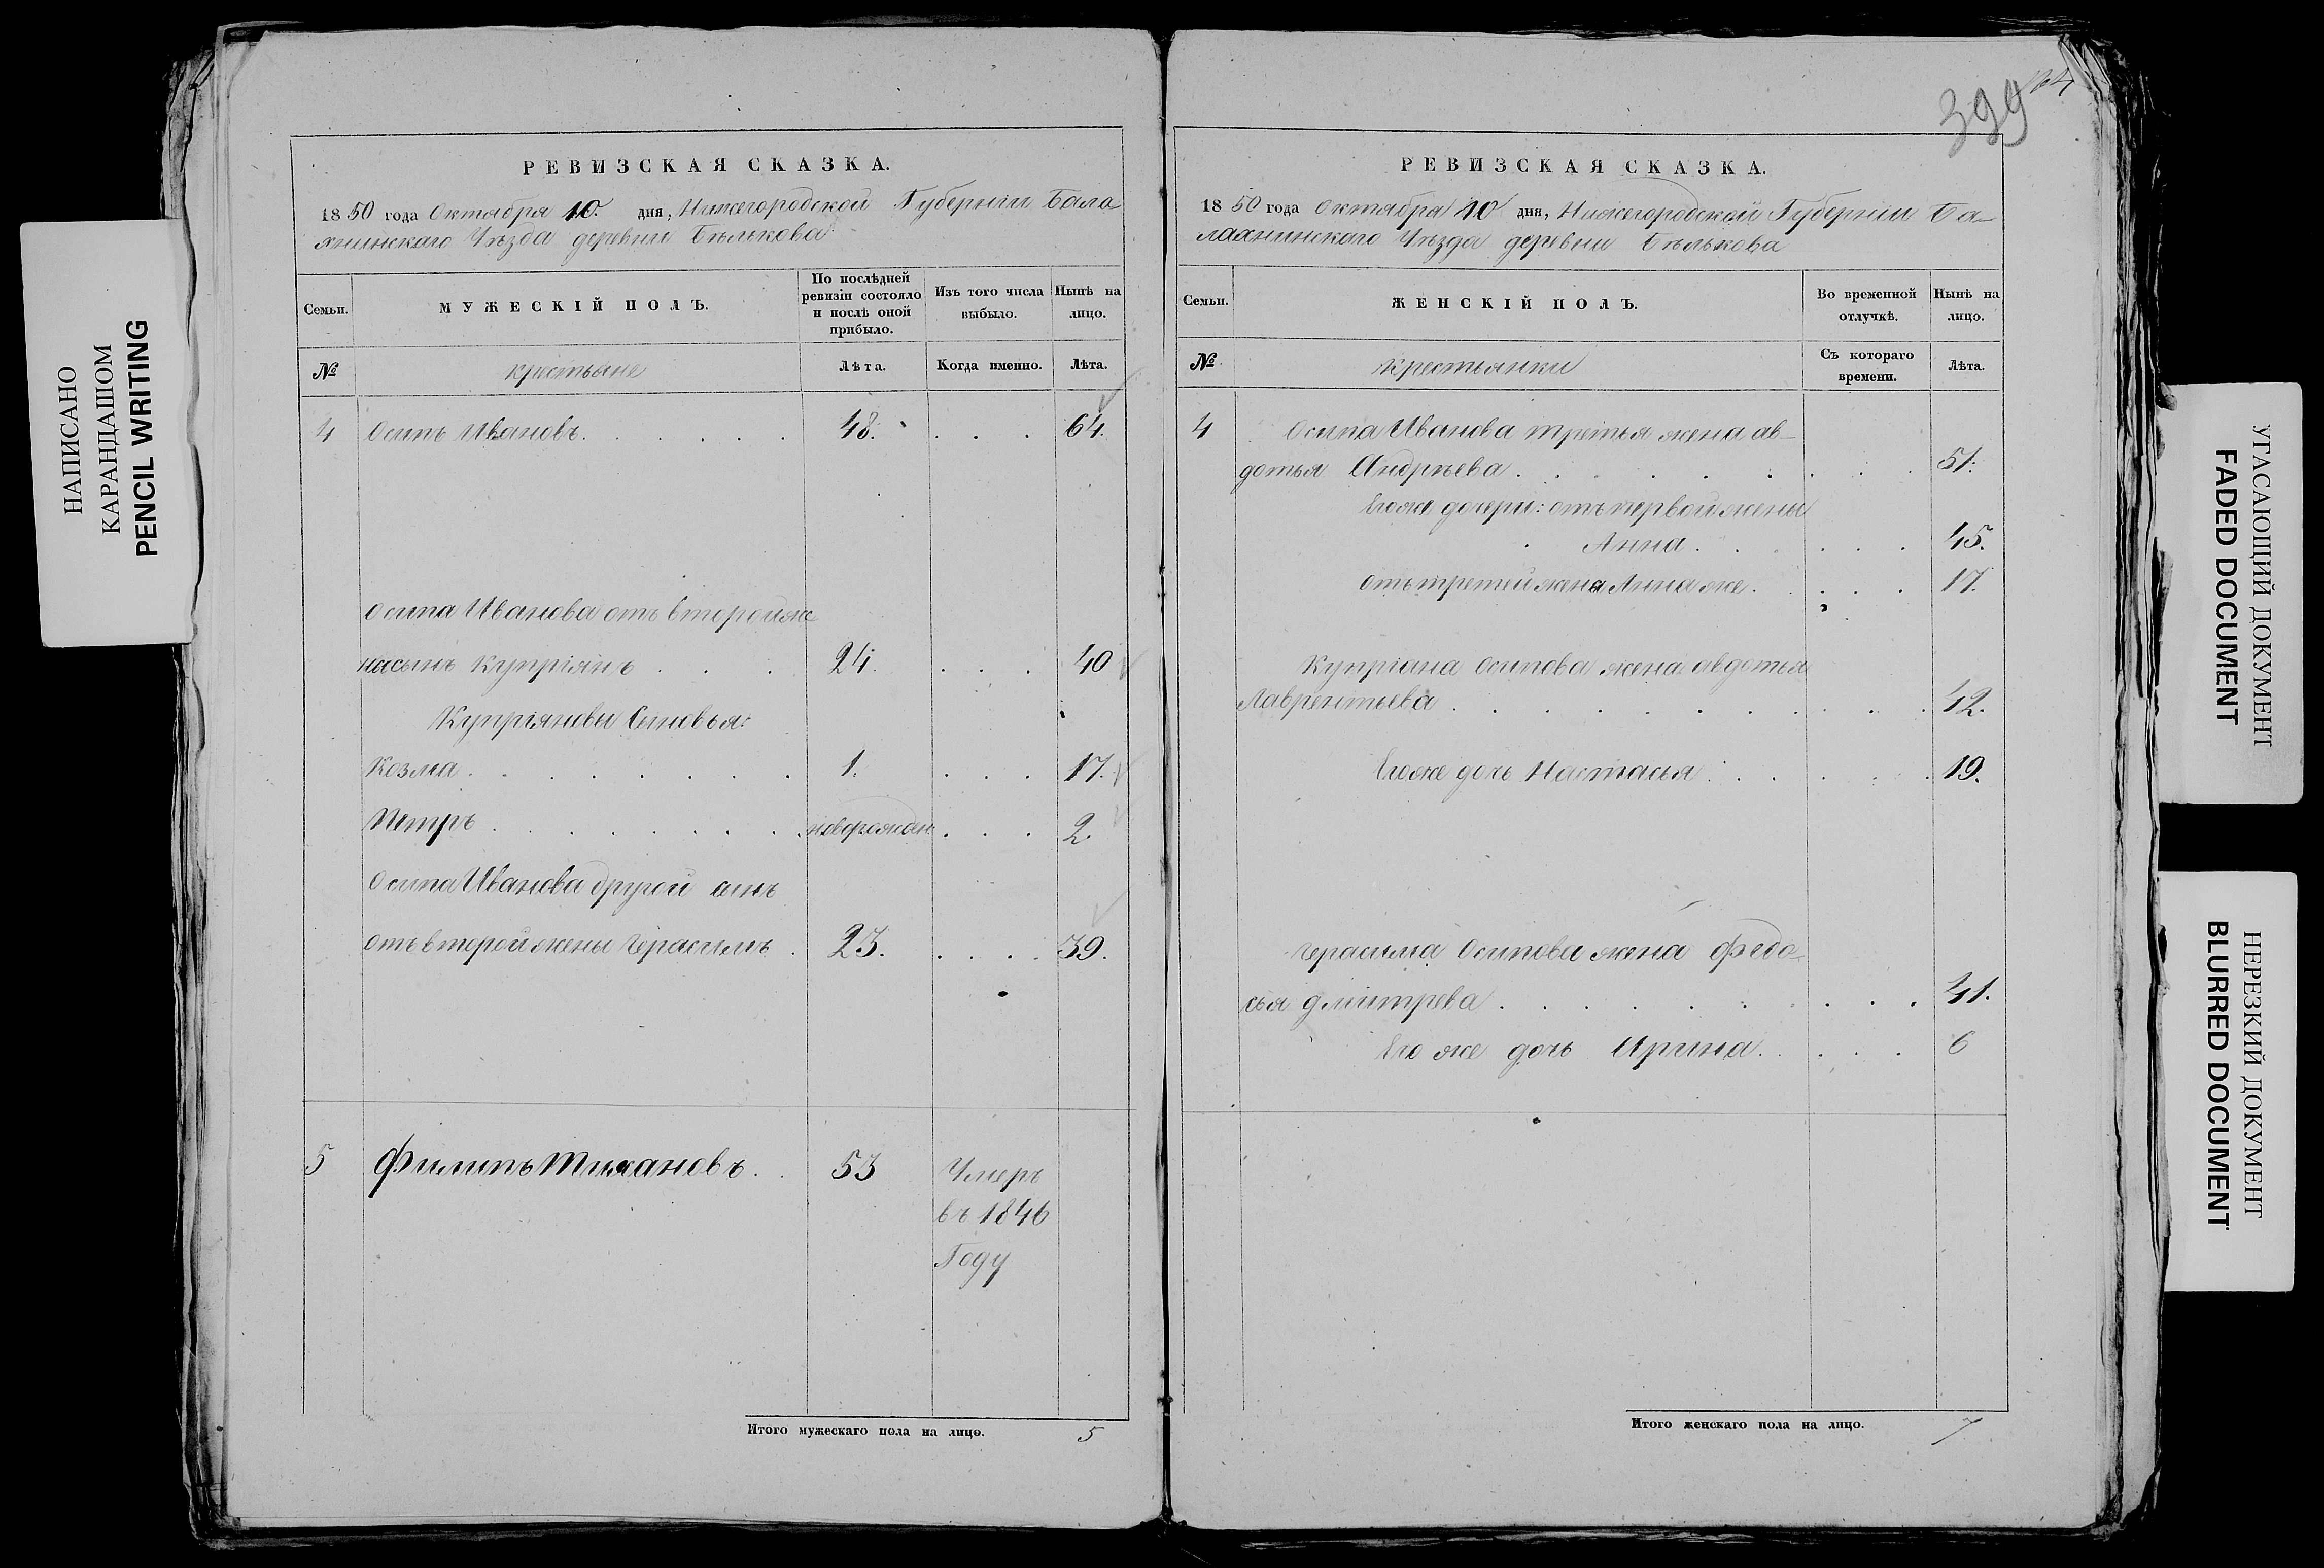 НАПИСАНО
КАРАНДАШОМ
PENCIL WRITING
РЕВИЗСКАЯ СКАЗКА.
1850 года Октября 10. дня, Нижегородской Губернiи Бала
хнинскаго Уѣзда деревни Бѣлькова
Семьи.
МУЖЕСКІЙ ПОЛЪ.
По послѣдней ревизіи состояло и послѣ оной прибыло.
Изъ того числа выбыло.
Нынѣ на лицо.
№
крестьяне
Лѣта.
Когда именно.
Лѣта.
4 Осипъ Ивановъ. 48. 64.
Осипа Иванова отъ второй же
на сынъ Купрiянъ 24. 40
Купрiяновы Сыновья:
Козма. 1. 17.
Петръ новорожден. 2.
Осипа Иванова другой сынъ
отъ второй жены Герасимъ 23. 39.
5 Филипъ Тихановъ. 53 Умеръ
въ 1846
Году
Итого мужескаго пола на лицо. 5
399
РЕВИЗСКАЯ СКАЗКА.
1850 года Октября 10 дня, Нижегородской Губернiи Ба-
лахнинскаго Уѣзда деревни Бѣлькова
Семьи.
ЖЕНСКІЙ ПОЛЪ.
Во временной отлучкѣ.
Нынѣ на лицо.
№
Крестьянки
Съ котораго времени.
Лѣта.
4 Осипа Иванова третья жена ав-
дотья Андрѣева. 51.
Егоже дочери: отъ первой жены
Анна. 45.
отъ третей жена Анна же. 17.
Купрiана Осипова жена авдотья
Лаврентьева. 42.
Егоже дочь Настасья 19.
Герасима Осипова жена Федо-
сья дмитрева. 41.
Его же дочь Ирина. 6
Итого женскаго пола на лицо. 7
УГАСАЮЩИЙ ДОКУМЕНТ
FADED DOCUMENT
НЕРЕЗКИЙ ДОКУМЕНТ
BLURRED DOCUMENT